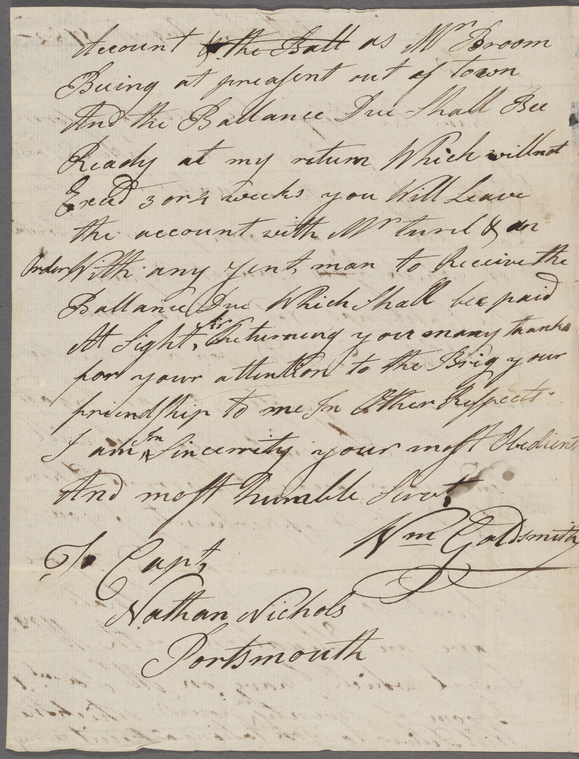 Account & the Ball as Mr Broom
Being at preasent out of town
And the Ballance Due Shall Bee
Ready at my return Which will not
Exead 3 or 4 weeks you Will Leave
the account with Mr turel & an
order With any gent man to Receive the
Ballance Due Which Shall bee paid
At Sight, Sir Returning you many thanks
for your attention to the Brig your
friendship to me In Other Respects
I am In Sincerity your most Obedient
And most humble Servt
Wm Goldsmith
To Capt,
Nathan Nichols
Portsmouth